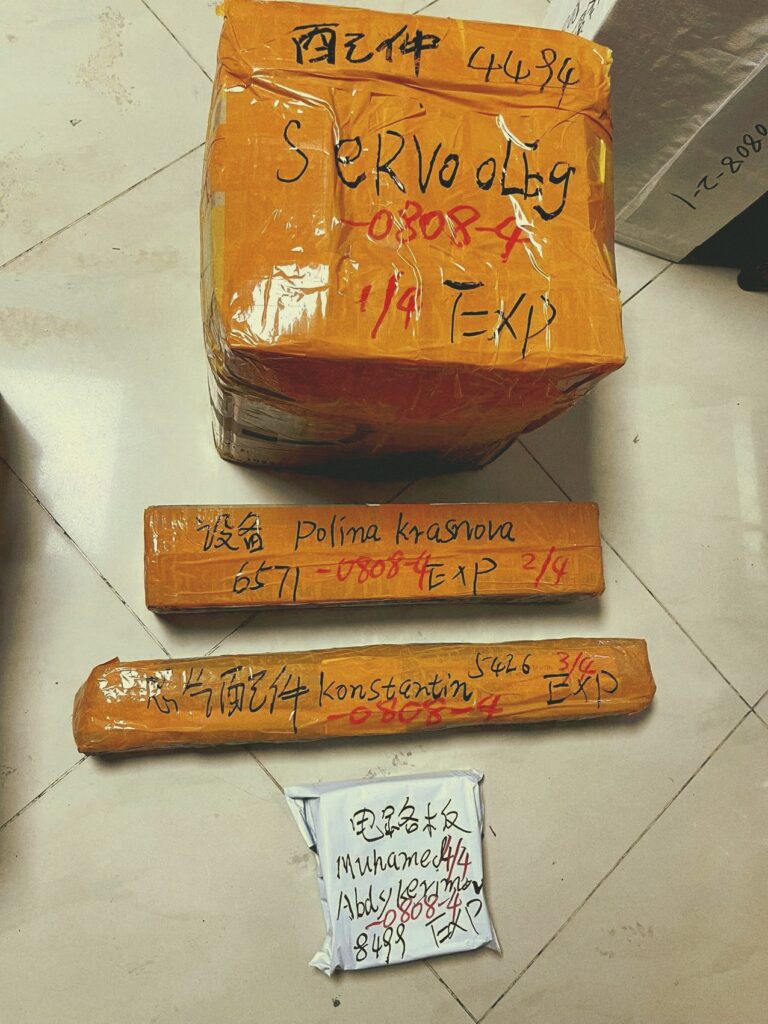 配件 4494
SERVO oLEg
-0808-4
1/4 EXP
1-2-8080
设备 Polina krasnova
6571 -0808-4 EXP 2/4
芯片配件 konstantin 5426 3/4 EXP
-0808-4
电路板
Muhamed 4/4
Abdykerimov
-0808-4
8499 EXP